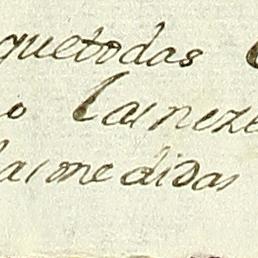 quetodas
o lasneze
lasmedidas